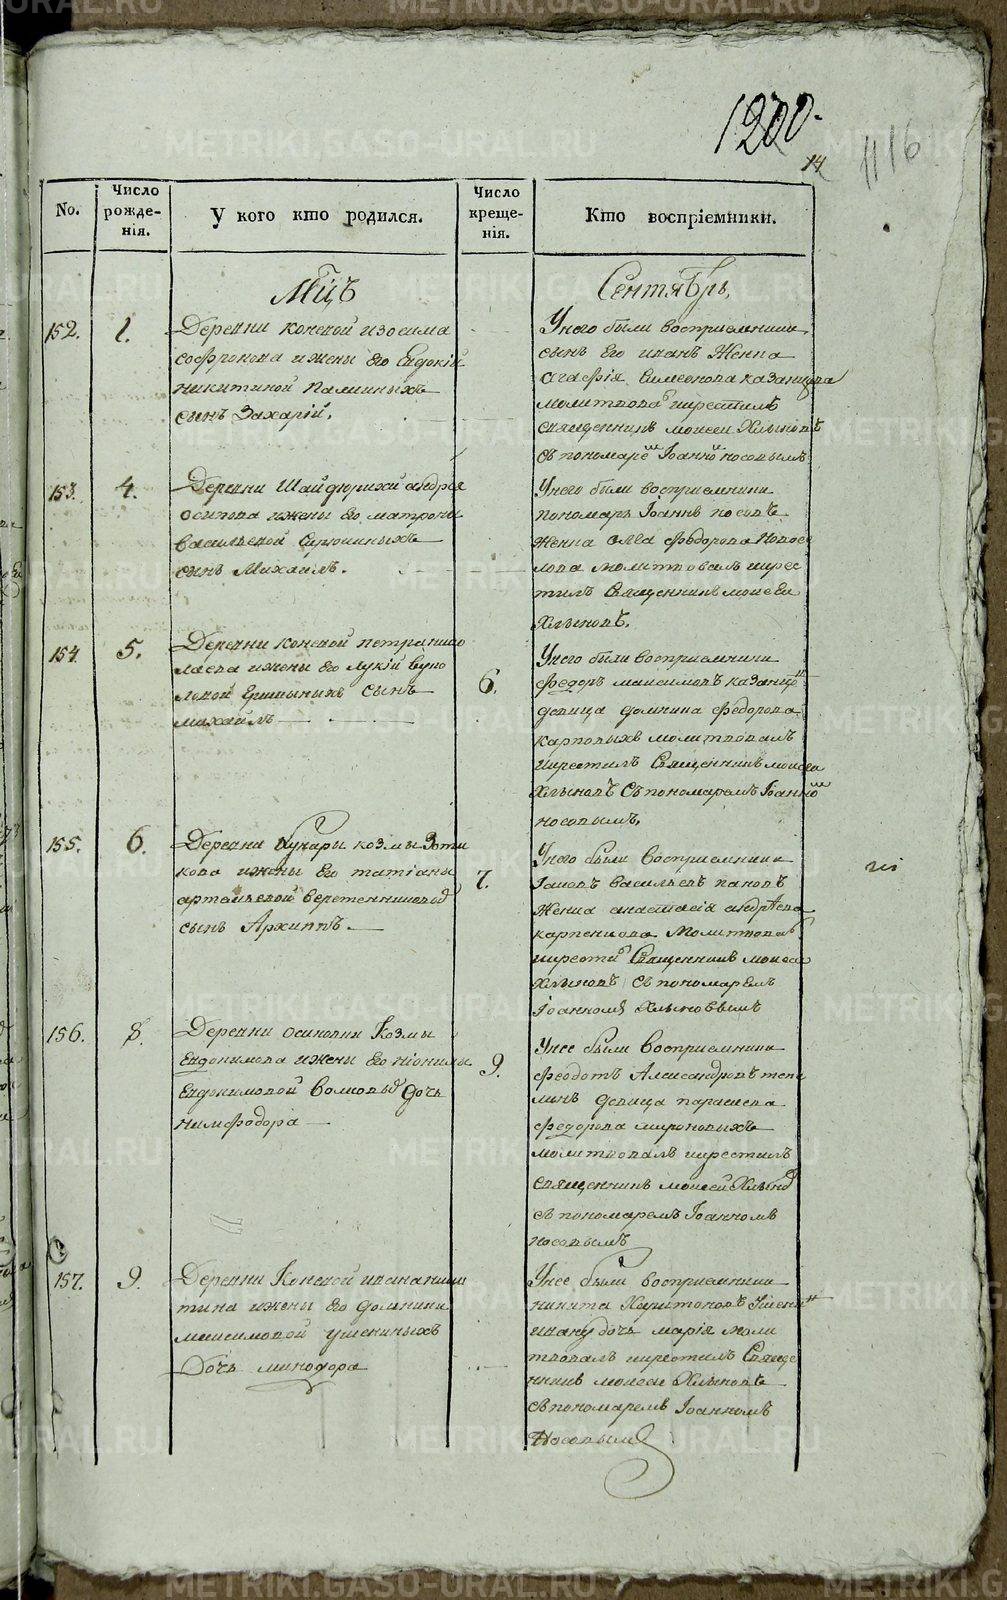 1200.
14
1116
No.
Число рожде-нія.
У кого кто родился.
Число креще-нія.
Кто воспріемники.
Мцъ
Сентябрь,
152.
1.
Деревни Коневой изосима
софронова и жены Его Евдокіи
никитиной Паминыхъ
сынъ Захарій.
Унего были восприемники
сынъ Его иванъ Женка
агафія Симеонова казанцова
молитвовалъ икрестилъ
священникъ моисей Хлыновъ
съ пономаремъ Іоанномъ носовымъ
153.
4.
Деревни Шайдюрихи андрея
осипова ижены Его матроны
васильевой
сынъ Михаилъ.
Унего были восприемники
пономарь Іоаннъ носовъ
женка олга федорова Новосе
лова молитвовалъ икрес
тилъ Священникъ моисеи
Хлыновъ.
154.
5.
Деревни Коневой петра нико
лаева ижены Его Лукіи Вуко
ловой сынъ
михаилъ
6.
Унего были восприемники
федоръ максимовъ казанце
девица домнина федорова
карповыхъ молитвовалъ
икрестилъ Священникъ моисеи
Хлыновъ Съ пономаремъ Іоанномъ
носовымъ,
155.
6.
Деревни козмы Зоти
кова ижены Его татіаны
артемьевой веретенниковыхъ
сынъ Архиппъ.
7.
Унего были Восприемники
Іаковъ васильевъ пановъ
Женка анастасія андрѣева
карпенкова Молитвовалъ
икрестилъ Священникъ моисеи
хлыновъ съ пономаремъ
Іоанномъ Хлыновымъ
156.
8.
Деревни осиновки Козмы
Евдокимова ижены Его
Евдокимовой волковыхъ дочь
нимфодора
9.
Унее были Восприемники
феодотъ Александровъ тепи
кинъ девица парасковья
федорова мироновыхъ
молитвовалъ икрестилъ
священникъ моисей Хлыновъ
съ пономаремъ Іоанномъ
носовымъ
157.
9.
Деревни Коневой ивана ники
тина ижены Его домнины
максимовой ушениныхъ
Дочь минодора
Унее были восприемники
никита Харитоновъ
дочь марія моли
твовалъ икрестилъ Свяще
нникъ моисеи Хлыновъ
съ пономаремъ Іоанномъ
Носовымъ
METRIKI.GASO-URAL.RU